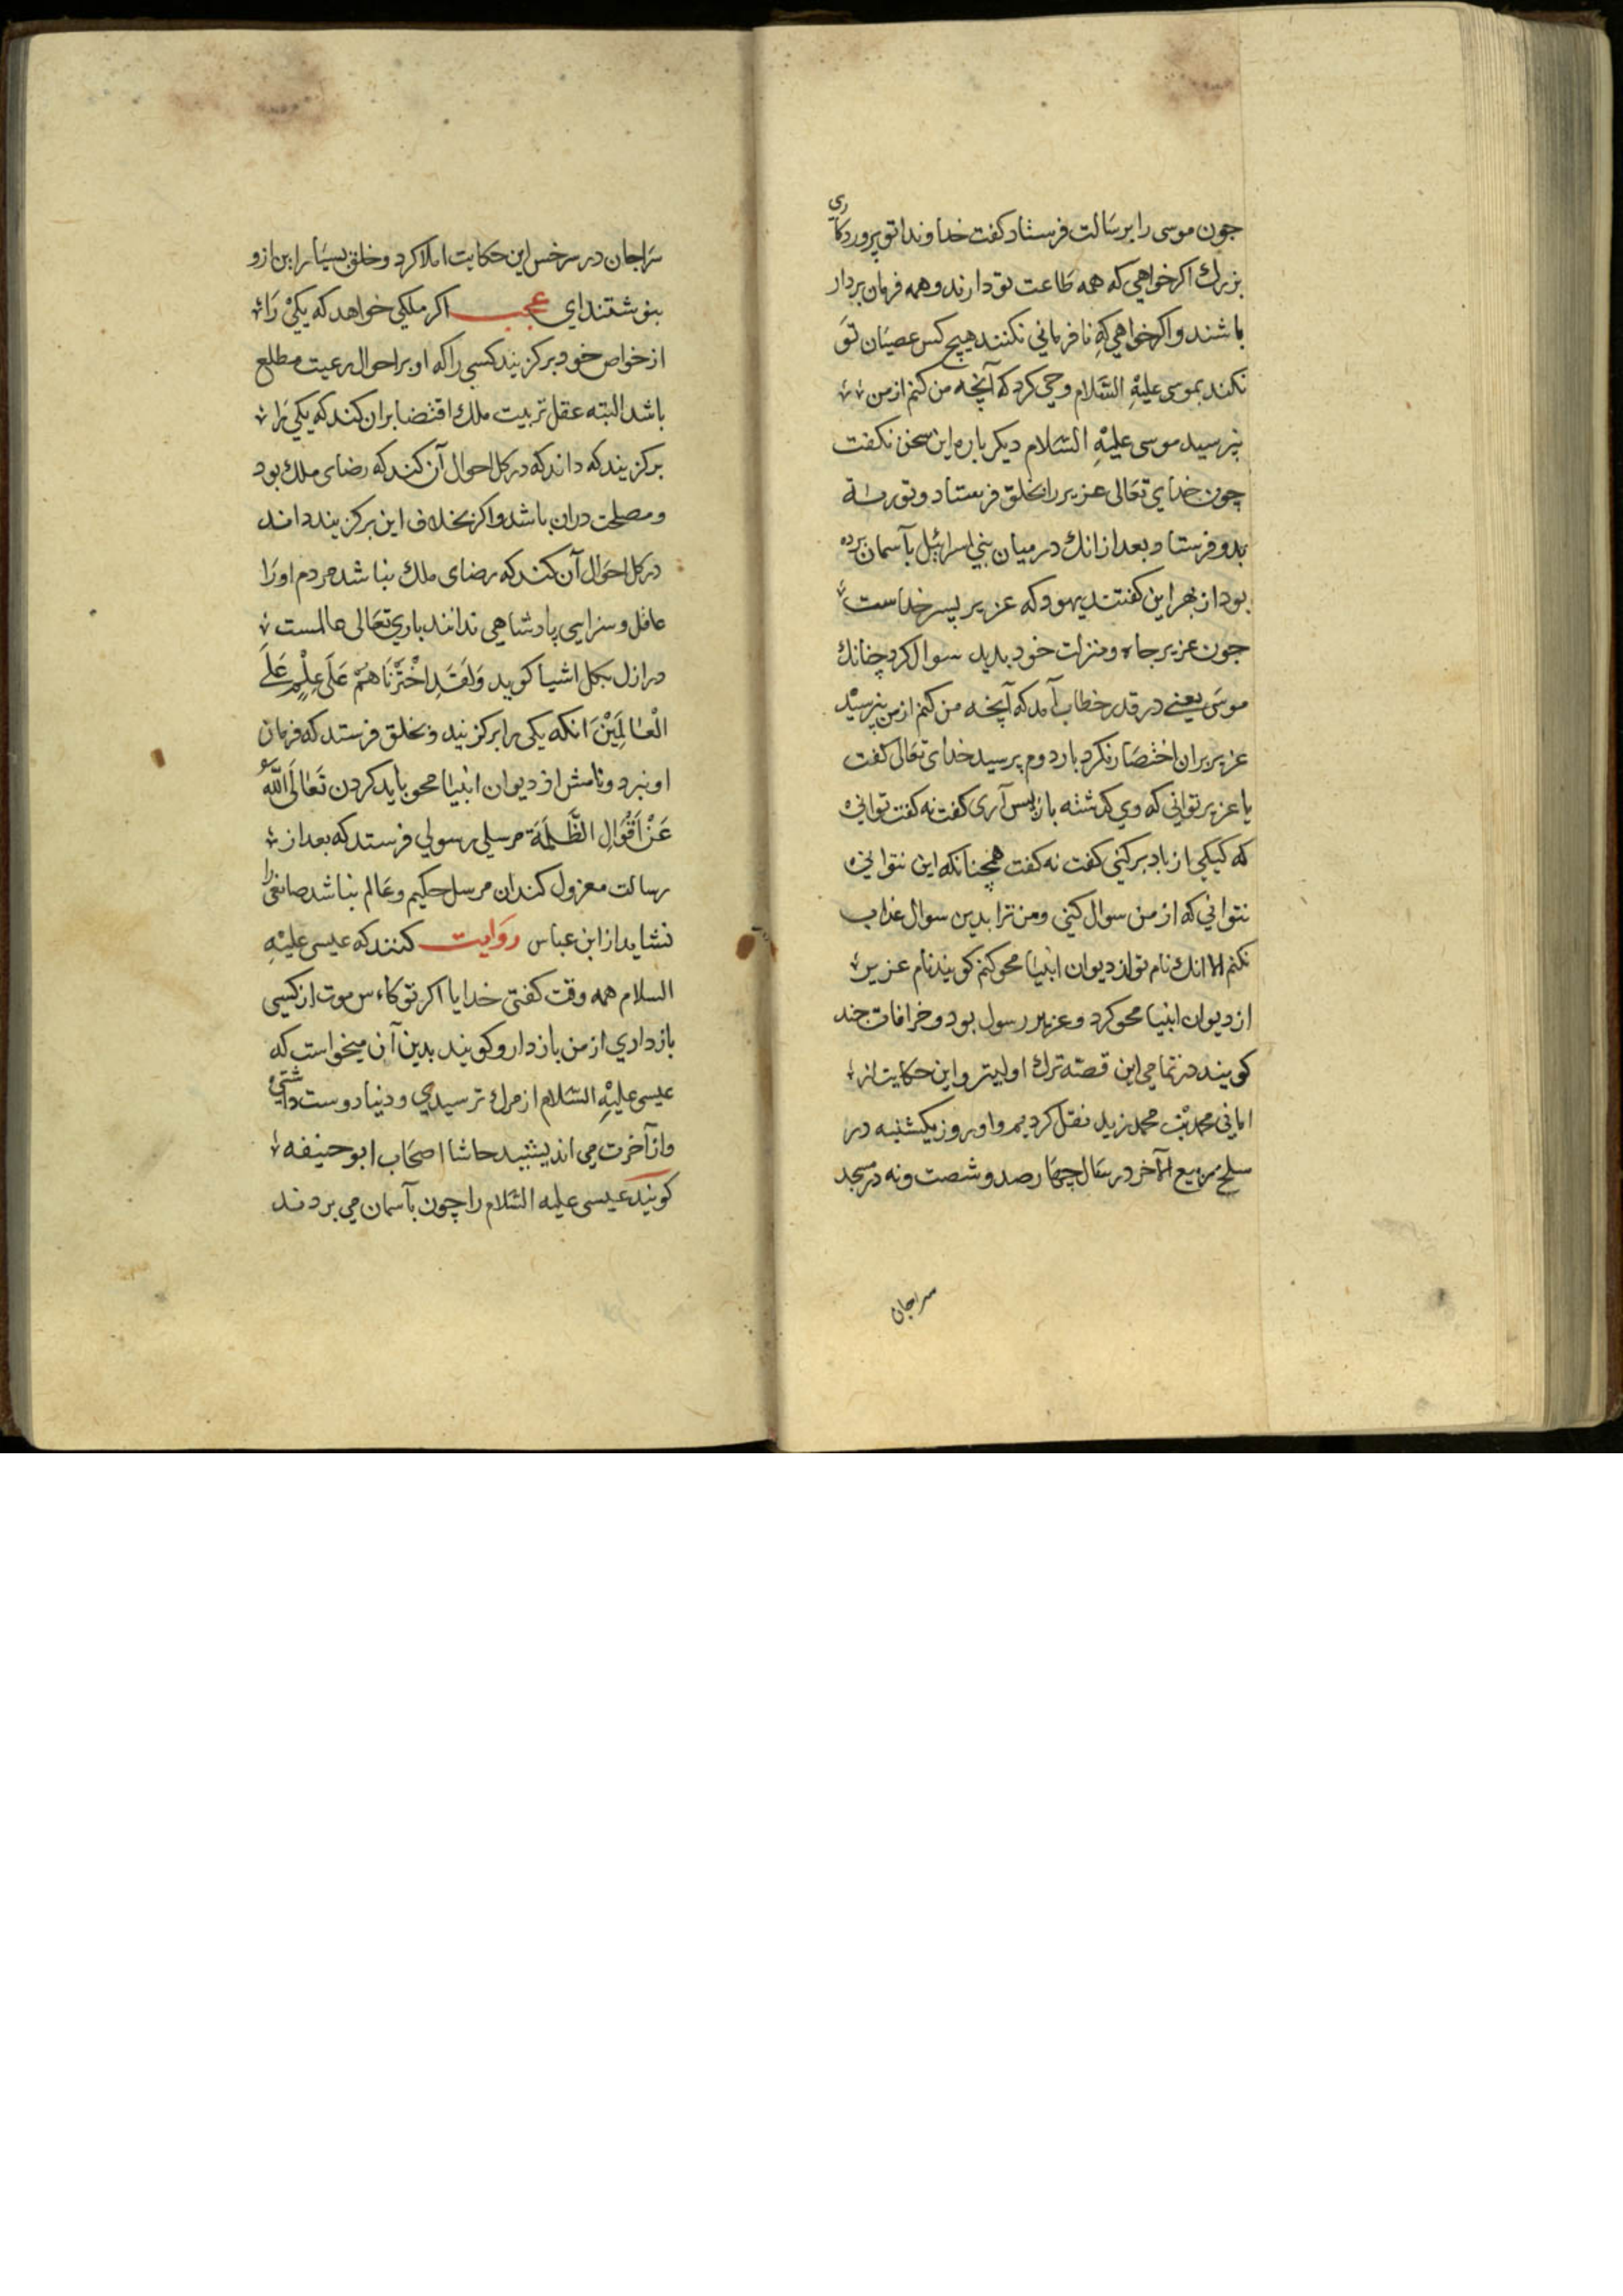 جون موسی را برسالت فرستاد کفت خداوندا تو پروردکاری
بزرك اکر خواهی که همه طاعت تو دارند و همه فرمان بردار
باشند و اکر خواهی که نافرمانی نکنند هیچ کس عصیان تو
نکند بموسی علیه السّلام وحی کرد که آنچه من کنم از من
نپرسید موسی علیه السّلام دیکر باره این سخن نکفت
چون خدای تعالی عزیر را بخلق فرستاد و توریة
بدو فرستاد بعد از انك در میان بنی اسرائیل بآسمان برده
بود از بهر این کفتند یهود که عزیر پسر خداست
جون عزیر جاه و منزلت خود بدید سوال کرد چنانك
موسی یعنی در قدر خطاب آمد که آنچه من کنم از من نپرسید
عزیر بران اختصار نکرد بار دوم پرسید خدای تعالی کفت
یا عزیر توانی که دی کذشته باز پس آری کفت نه کفت توانی
که کیلکی از باد برکنی کفت نه کفت همچنانکه این نتوانی
نتوانی که از من سوال کنی و من ترا بدین سوال عذاب
نکنم الا انك نام تو از دیوان انبیا محو کنم کویند نام عزیر
از دیوان انبیا محو کرد و عزیر رسول بود و خرافات چند
کویند در تمامی این قصّه ترك اولیتر و این حکایت از
امانی محمد بن محمد زید نقل کردیم و او روز یکشنبه در
سلخ ربیع الآخر در سال چهارصد و شصت و نه در مسجد
سراجان
سراجان در سرخس این حکایت املا کرد و خلق بسیار این ازو
بنوشتند ای عجب اکر ملکی خواهد که یکی را
از خواص خود برکزیند کسی را که او بر احوال رعیت مطلع
باشد البته عقل تربیت ملك اقتضا بران کند که یکی را
برکزیند که داند که در کل احوال آن کند که رضای ملك بود
و مصلحت دران باشد و اکر بخلاف این برکزیند داند
در کل احوال آن کند که رضای ملك نباشد مردم او را
عاقل و سزای پادشاهی ندانند باری تعالی عالمست
در ازل بکل اشیا کوید وَلَقَدِ اخْتَرْنَاهُمْ عَلَى عِلْمٍ عَلَى
الْعَالَمِيْنَ انکه یکی را برکزیند و بخلق فرستد که فرمان
او نبرد و نامش از دیوان انبیا محو باید کردن تَعَالَى اللّٰهُ
عَنْ اَقْوَالِ الظَّلَمَةِ مرسلی رسولی فرستد که بعد از
رسالت معزول کند ان مرسل حکیم و عالم نباشد صانعی را
نشاید از ابن عباس روایت کنند که عیسی علیه
السلام همه وقت کفتی خدایا اکر تو کاءس موت از کسی
بازداری از من باز دار و کویند بدین آن میخواست که
عیسی علیه السّلام از مرك ترسیدی و دنیا دوست داشتی
و از آخرت می اندیشید حاشا اصحاب ابو حنیفه
کویند عیسی علیه السّلام را چون بآسمان می بردند